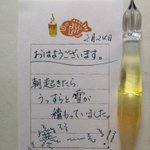 2月24日
おはようございます。
朝起きたら
うっすらと雪が
積もっていました。
寒〜〜い!!